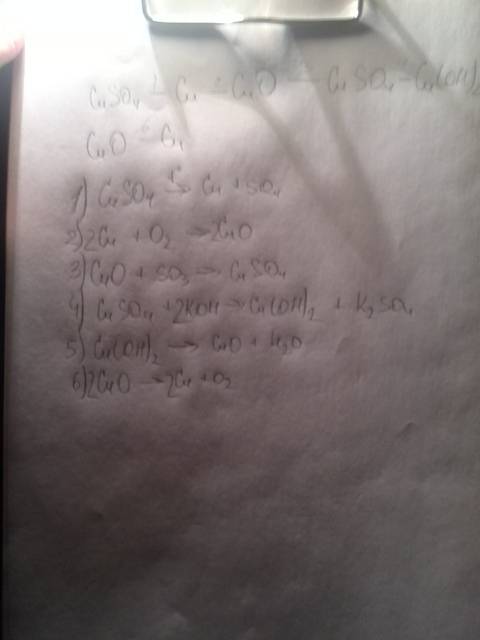 CuSO4 1– Cu 2– CuO 3– CuSO4 – Cu(OH)2
CuO 6– Cu
1) CuSO4 t→ Cu + SO4
2) 2Cu + O2 → 2CuO
3) CuO + SO3 → CuSO4
4) CuSO4 + 2KOH → Cu(OH)2 + K2SO4
5) Cu(OH)2 → CuO + H2O
6) 2CuO → 2Cu + O2